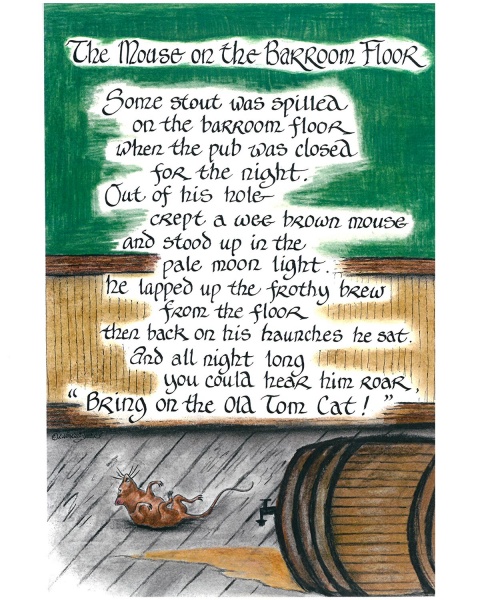 The Mouse on the Barroom Floor
Some stout was spilled
on the barroom floor
when the pub was closed
for the night.
Out of his hole
crept a wee brown mouse
and stood up in the
pale moon light.
he lapped up the frothy brew
from the floor
then back on his haunches he sat.
And all night long
you could hear him roar,
“Bring on the Old Tom Cat!”